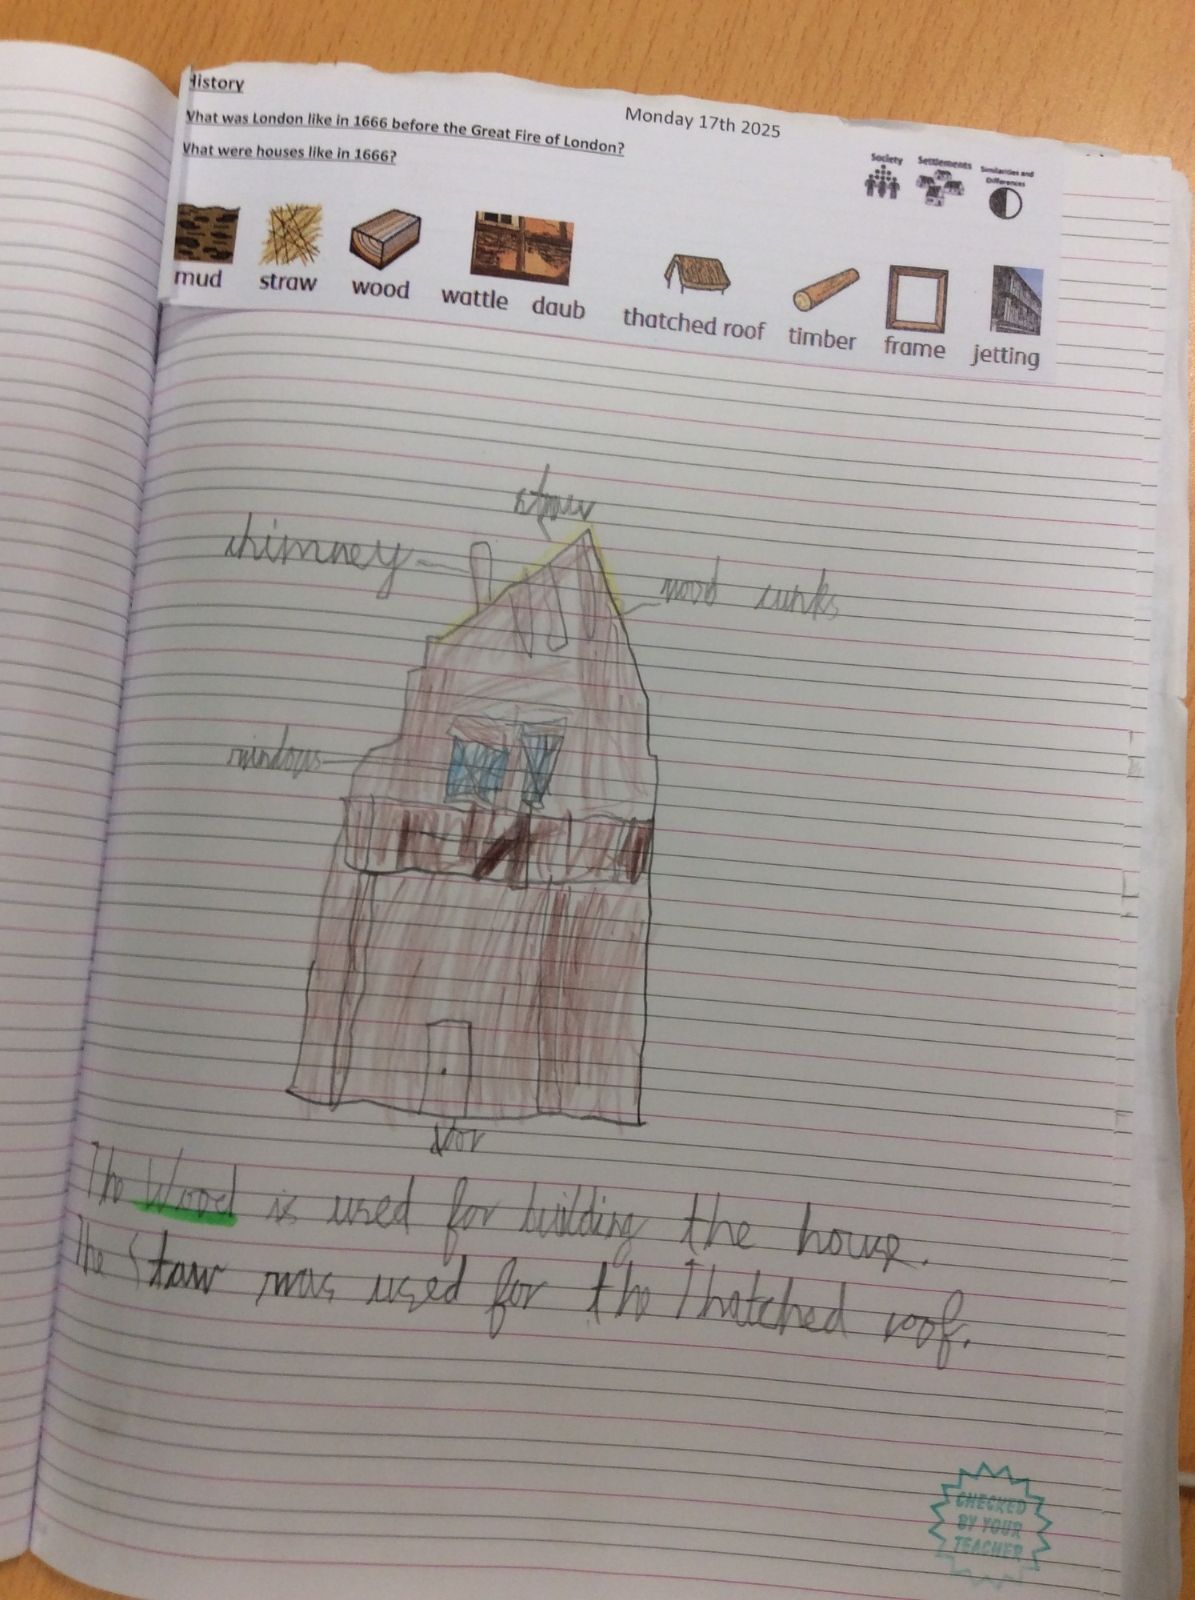 History
Monday 17th 2025
What was London like in 1666 before the Great Fire of London?
What were houses like in 1666?
Society
Settlements
Similarities and
Differences
mud
straw
wood
wattle
daub
thatched roof
timber
frame
jetting
straw
chimney
wood
windows
The Wood is used for building the house.
The Staw was used for the Thatched roof.
CHECKED
BY YOUR
TEACHER